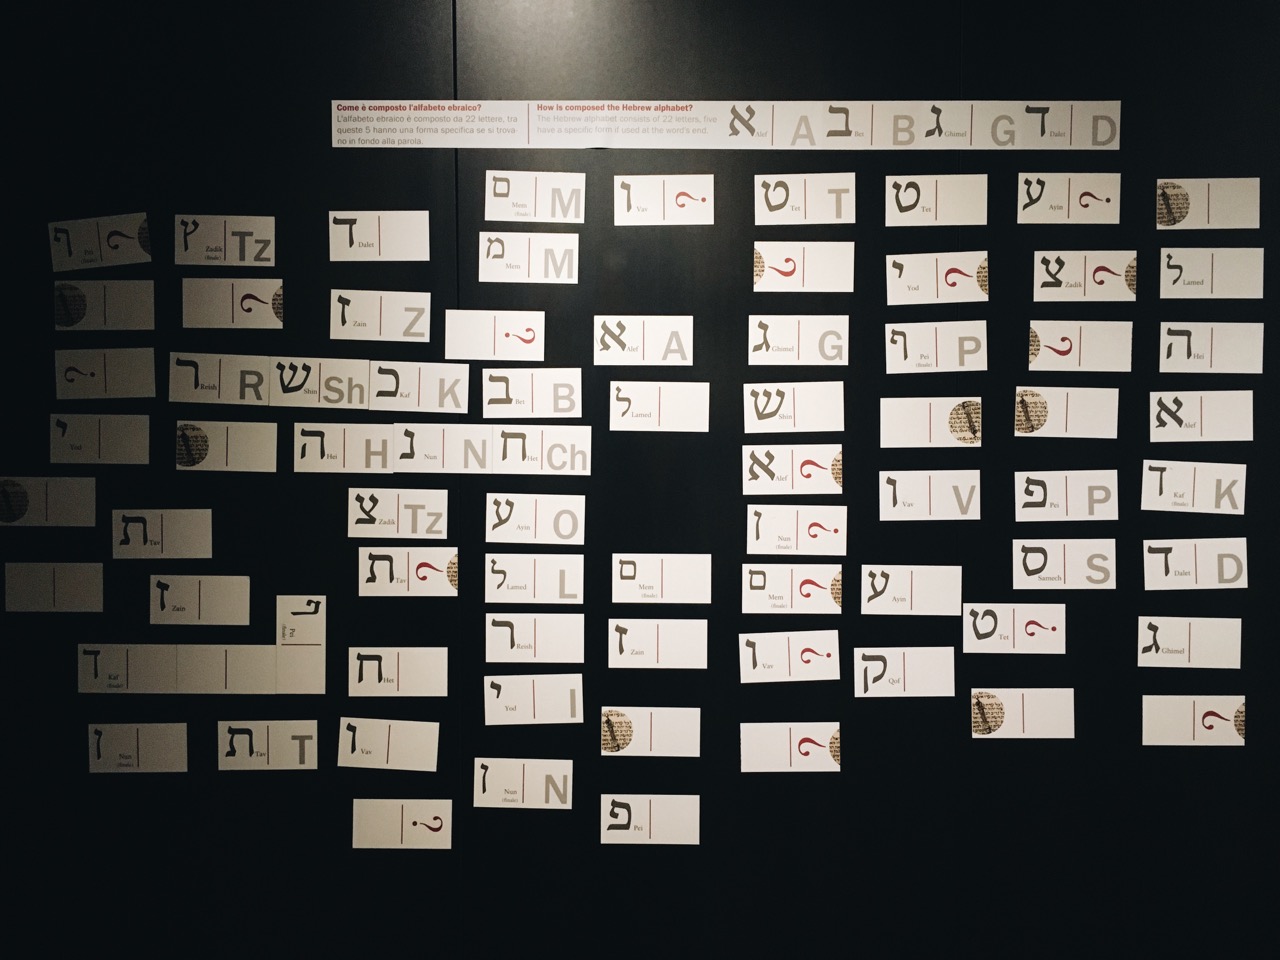 Come è composto l'alfabeto ebraico?
L'alfabeto ebraico è composto da 22 lettere, tra
queste 5 hanno una forma specifica se si trova-
no in fondo alla parola.
How is composed the Hebrew alphabet?
The Hebrew alphabet consists of 22 letters, five
have a specific form if used at the word's end.
א Alef A ב Bet B ג Ghimel G ד Dalet D
ם Mem (finale) M
ו Vav ?
ט Tet T
ט Tet
ע Ayin ?
ף Pei (finale) ?
ץ Zadik (finale) Tz
ד Dalet
מ Mem M
?
י Yod ?
צ Zadik ?
ל Lamed
?
ז Zain Z
?
א Alef A
ג Ghimel G
ף Pei (finale) P
?
ה Hei
?
ר Reish R ש Shin Sh כ Kaf K
ב Bet B
ל Lamed
ש Shin
א Alef
י Yod
ה Hei H נ Nun N ח Het Ch
א Alef ?
ו Vav V
פ Pei P
ך Kaf (finale) K
צ Zadik Tz
ע Ayin O
ן Nun (finale) ?
ת Tav
ת Tav ?
ל Lamed L
ם Mem (finale)
ם Mem (finale) ?
ע Ayin
ס Samech S
ד Dalet D
ז Zain
ף Pei (finale)
ר Reish
ז Zain
ו Vav ?
ט Tet ?
ג Ghimel
ך Kaf (finale)
ח Het
י Yod I
ק Qof
ן Nun (finale)
ת Tav T
ו Vav
?
?
ן Nun (finale) N
?
פ Pei